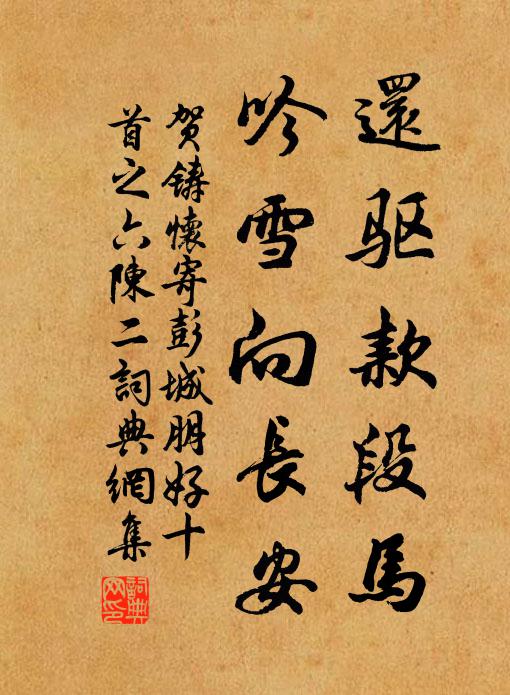 還驱款段馬
吟雪向長安
賀鑄懷寄彭城朋好十
首之六陳二詞典網集
詞典
网印